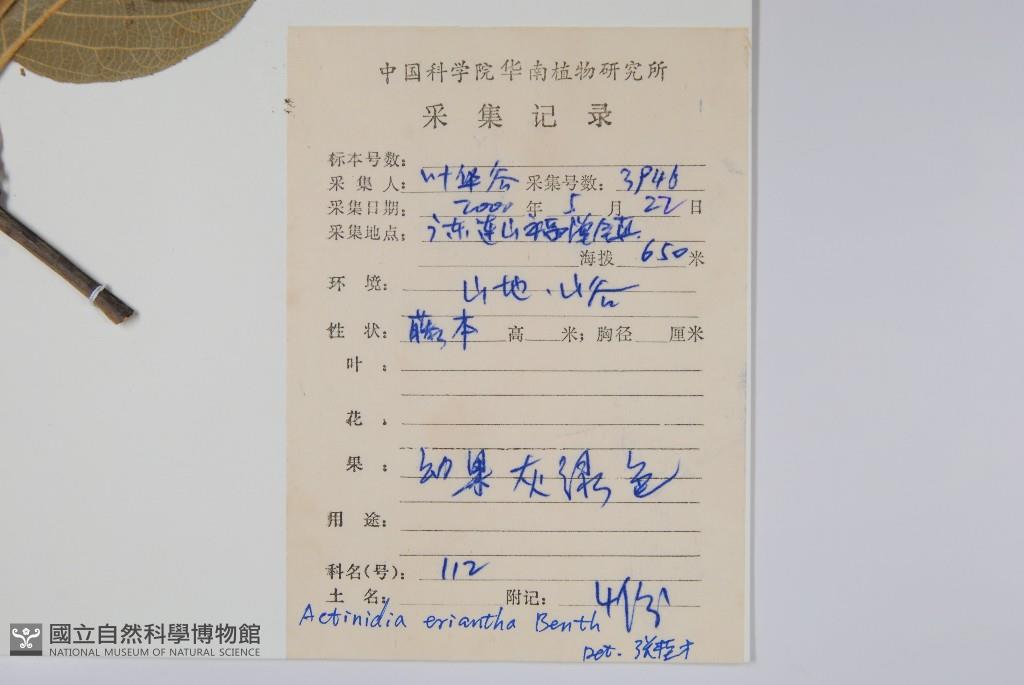 中国科学院华南植物研究所
采集记录
标本号数:
采集人: 叶华谷 采集号数: 3946
采集日期: 2000 年 5 月 22 日
采集地点: 广东连山
海拨 650 米
环境: 山地、山谷
性状: 藤本 高 米; 胸径 厘米
叶:
花:
果: 幼果灰绿色
用途:
科名(号): 112
土名: 附记: 4份
Actinidia eriantha Benth
Det. 张桂才
國立自然科學博物館
NATIONAL MUSEUM OF NATURAL SCIENCE